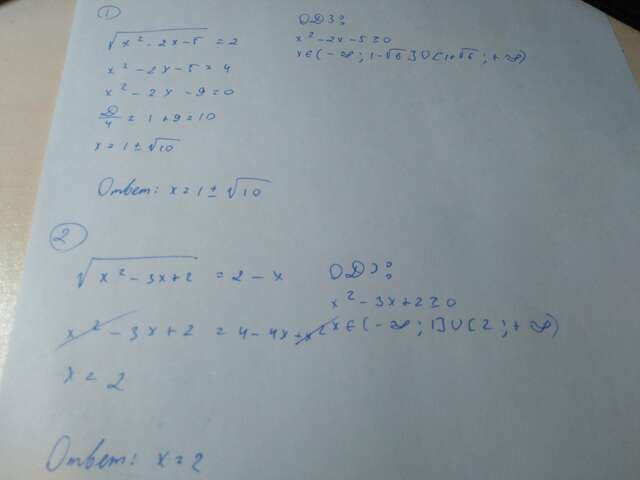 1
√(x² - 2x - 5) = 2
ОДЗ:
x² - 2x - 5 ≥ 0
x ∈ (-∞; 1-√6] ∪ [1+√6; +∞)
x² - 2x - 5 = 4
x² - 2x - 9 = 0
D/4 = 1 + 9 = 10
x = 1 ± √10
Ответ: x = 1 ± √10
2
√(x² - 3x + 2) = 2 - x
ОДЗ:
x² - 3x + 2 ≥ 0
x ∈ (-∞; 1] ∪ (2; +∞)
x² - 3x + 2 = 4 - 4x + x²
x = 2
Ответ: x = 2